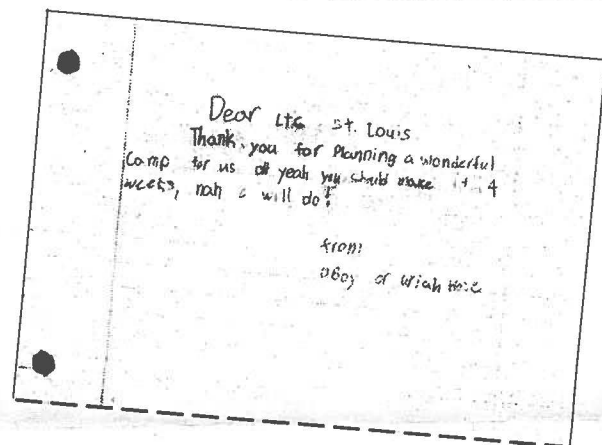 Dear LTC St. Louis
Thank you for Planning a wonderful
Camp for us oh yeah you should make it 4
weeks, nah will do!
from
or Uriah